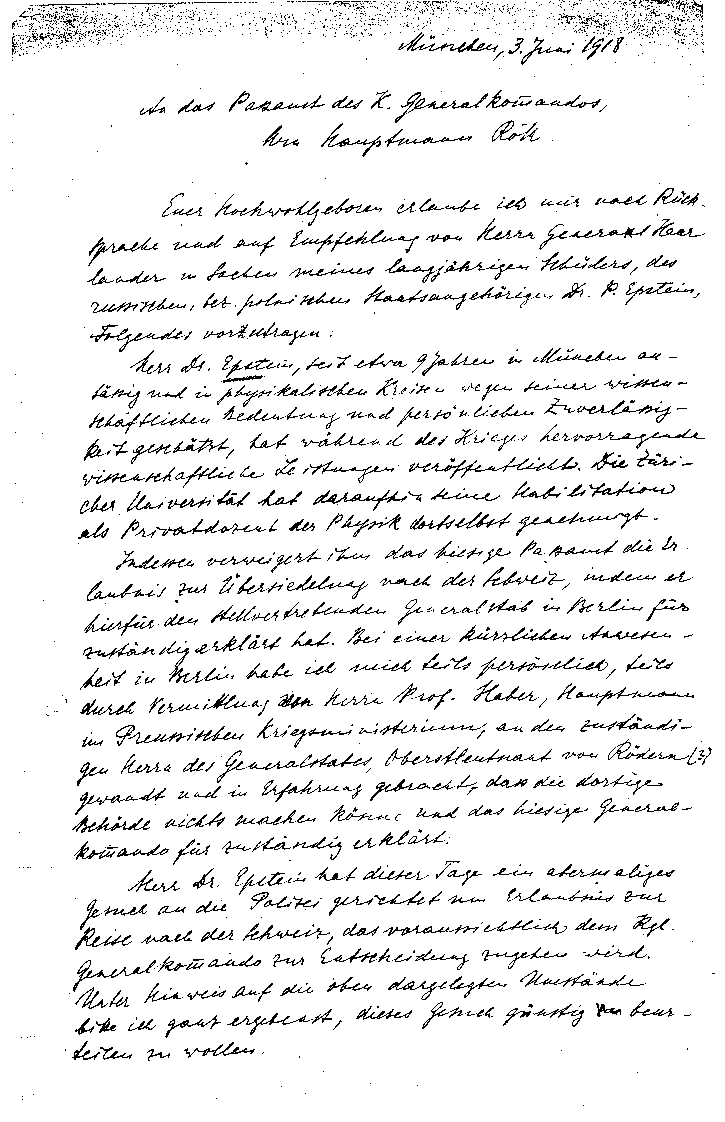 München, 3. Juni 1918
An das Passamt des K. Generalkom̅andos,
Hrn Hauptmann Röth
Euer Hochwohlgeboren erlaube ich mir nach Rück-
sprache und auf Empfehlung von Herrn General Haer
lander in Sachen meines langjährigen Schülers, des
russischen, bez. polnischen Staatsangehörigen Dr. P. Epstein,
Folgendes vorzutragen:
Herr Dr. Epstein, seit etwa 9 Jahren in München an-
sässig und in physikalischen Kreisen wegen seiner wissen-
schaftlichen Bedeutung und persönlichen Zuverlässig-
keit geschätzt, hat während des Krieges hervorragende
wissenschaftliche Leistungen veröffentlicht. Die Züri-
cher Universität hat daraufhin seine Habilitation
als Privatdozent der Physik dortselbst genehmigt.
Indessen verweigert ihm das hiesige Passamt die Er-
laubnis zur Übersiedelung nach der Schweiz, indem er
hierfür den stellvertretenden Generalstab in Berlin für
zuständig erklärt hat. Bei einer kürzlichen Anwesen-
heit in Berlin habe ich mich teils persönlich, teils
durch Vermittlung von Herrn Prof. Haber, Hauptmann
im Preussischen Kriegsministerium, an den zuständi-
gen Herrn des Generalstabes, Oberstleutnant von Rödern (?)
gewandt und in Erfahrung gebracht, dass die dortige
Behörde nichts machen könne und das hiesige General-
kom̅ando für zuständig erklärt.
Herr Dr. Epstein hat dieser Tage ein abermaliges
Gesuch an die Polizei gerichtet um Erlaubnis zur
Reise nach der Schweiz, das voraussichtlich dem Kgl.
Generalkom̅ando zur Entscheidung zugehen wird.
Unter Hinweis auf die oben dargelegten Umstände
bitte ich ganz ergebenst, dieses Gesuch günstig beur-
teilen zu wollen.